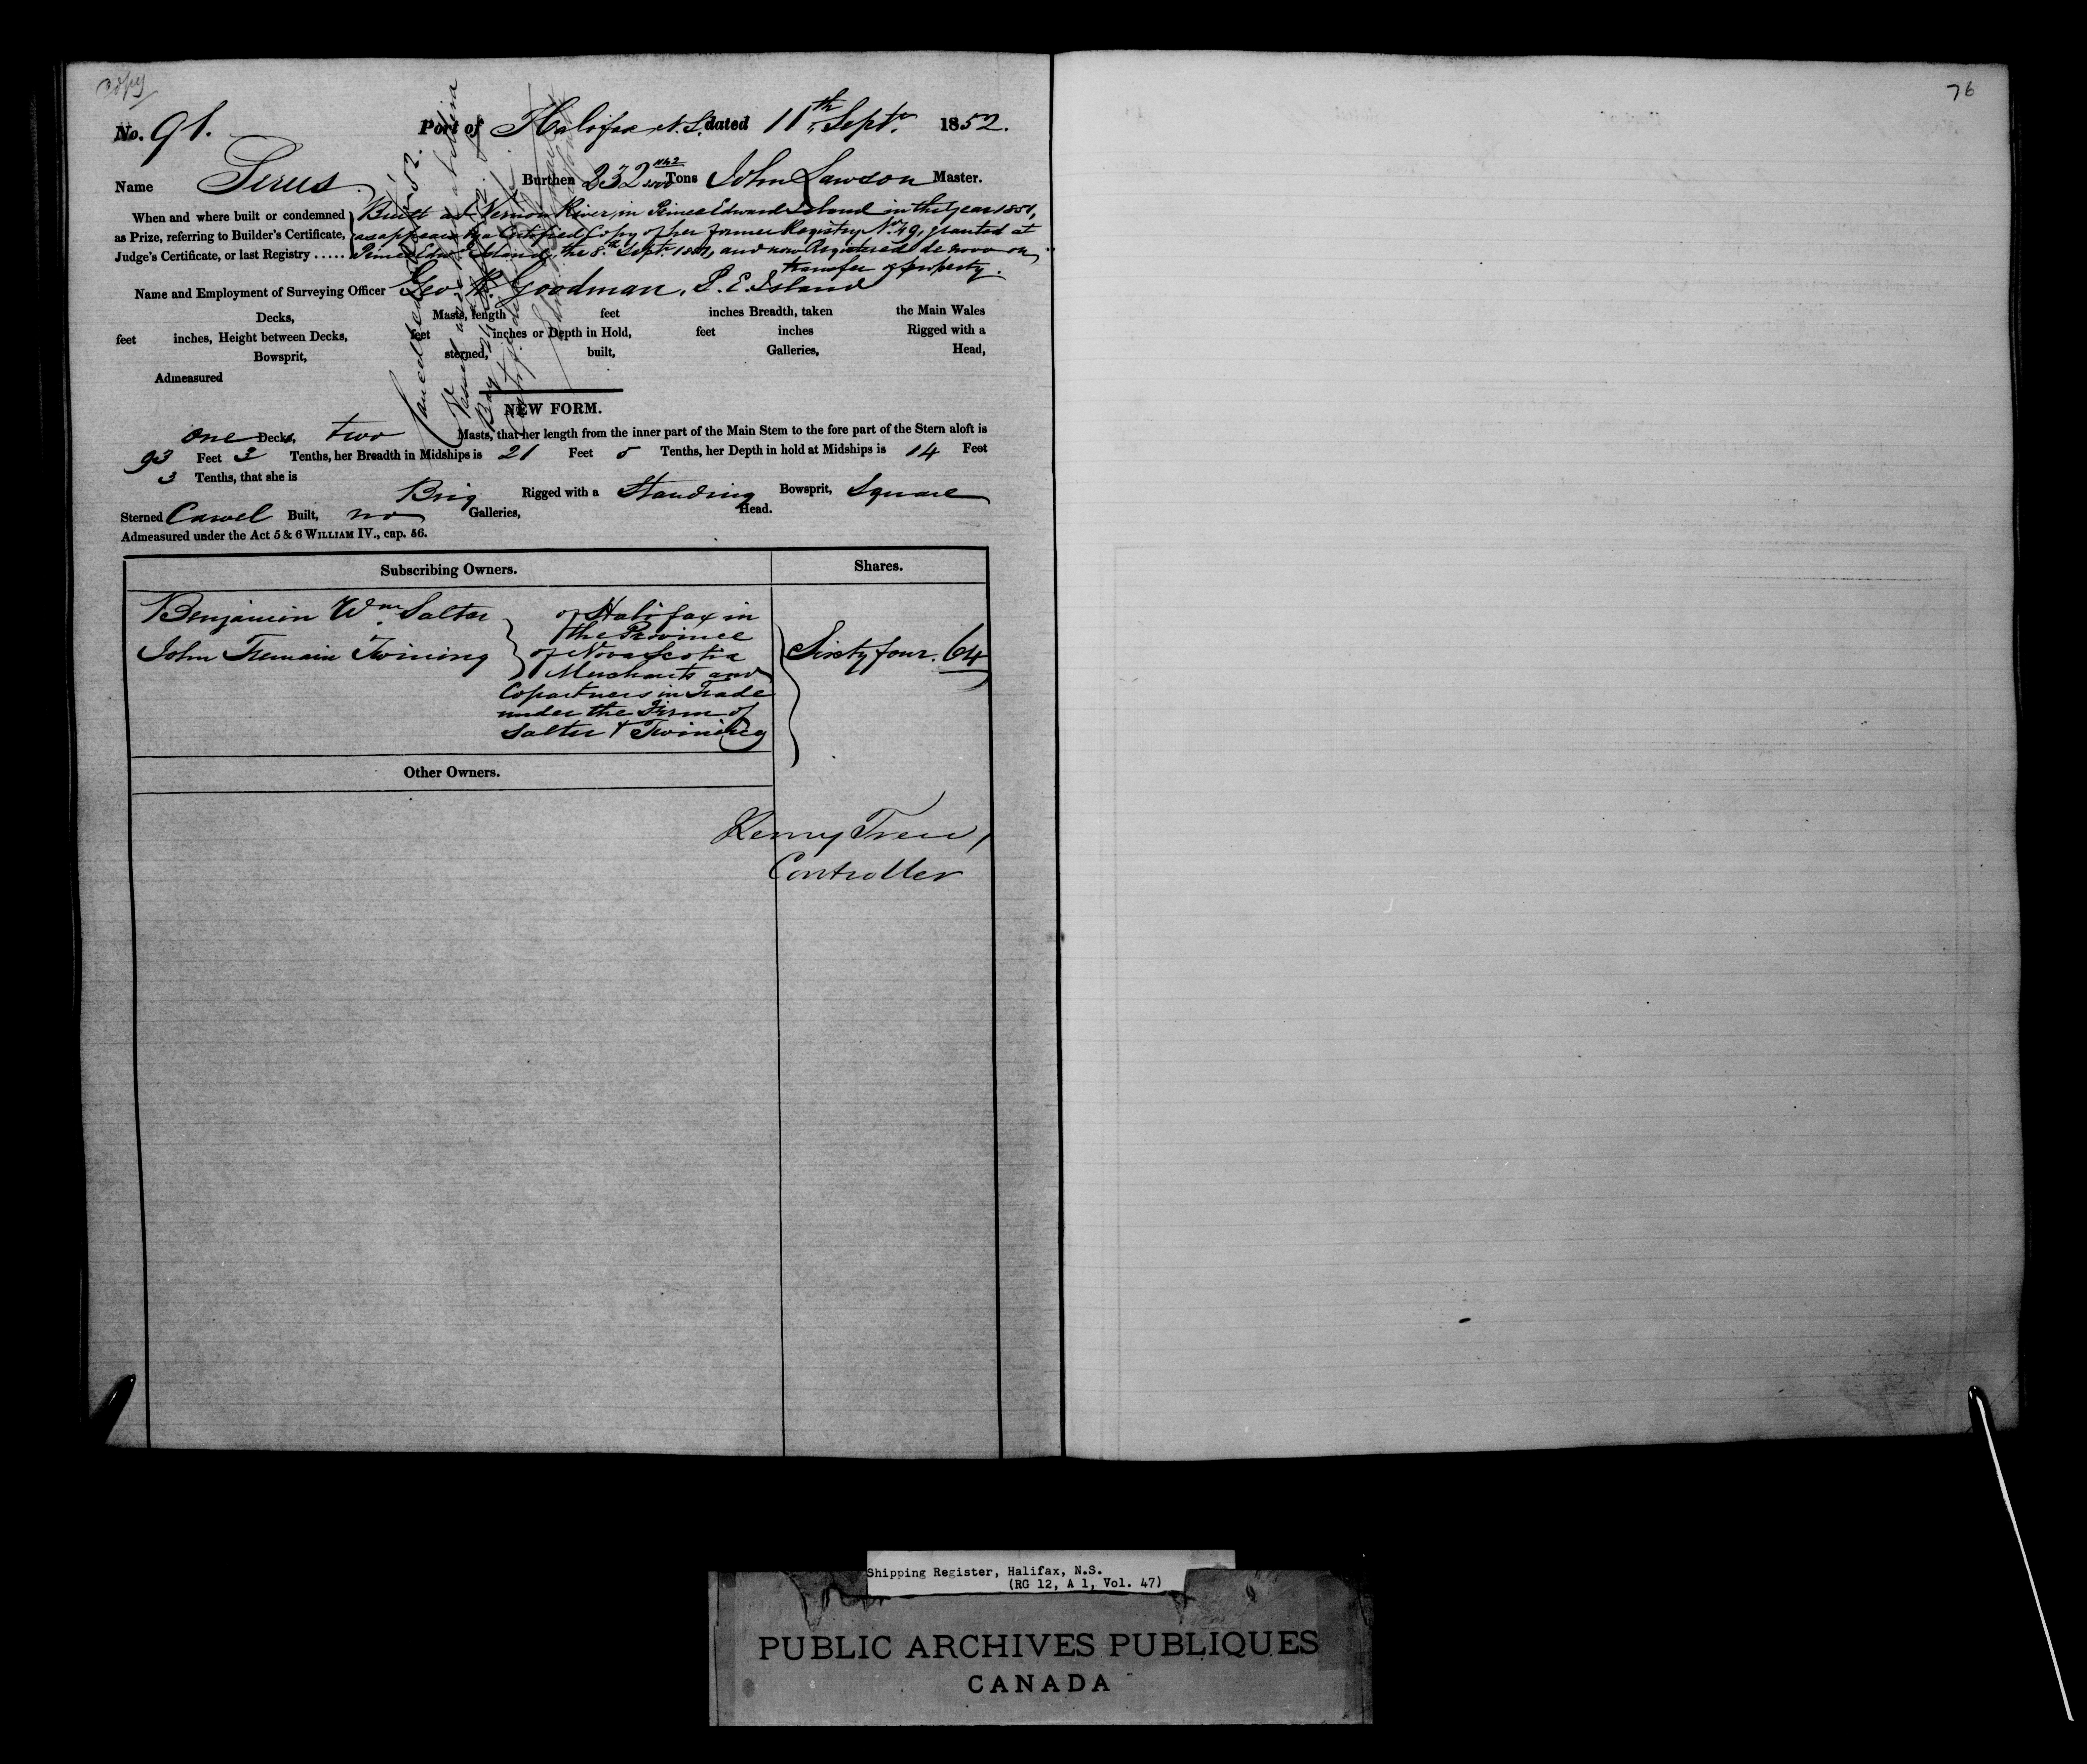 Copy
76
No. 91. Port of Halifax N.S. dated 11th Septr. 1852.
Name Burthen 232 Tons John Lawson Master.
When and where built or condemned
as Prize, referring to Builder's Certificate,
Judge's Certificate, or last Registry .....
Built at Vernon River, in Prince Edward Island in the Year 1851,
as appears by a Certified Copy of her former Registry No. 49, granted at
Prince Edwd Island, the 8th Septr and now Registered de novo on
transfer of property.
Name and Employment of Surveying Officer Geo. R. Goodman, P. E. Island
Decks, Masts, length feet inches Breadth, taken the Main Wales
feet inches, Height between Decks, feet inches or Depth in Hold, feet inches Rigged with a
Bowsprit, sterned, built, Galleries, Head,
Admeasured
Cancelled
Vessel
NEW FORM.
One Decks, two Masts, that her length from the inner part of the Main Stem to the fore part of the Stern aloft is
93 Feet 3 Tenths, her Breadth in Midships is 21 Feet 5 Tenths, her Depth in hold at Midships is 14 Feet
3 Tenths, that she is
Brig Rigged with a Standing Bowsprit, Square
Sterned Carvel Built, no Galleries, Head.
Admeasured under the Act 5 & 6 WILLIAM IV., cap. 56.
Subscribing Owners. Shares.
Benjamin Wm. Salter
John Fremain Twining
of Halifax in
the Province
of Nova Scotia
Merchants and
Copartners in Trade
under the Firm of
Salter & Twining
Sixty four. 64
Other Owners.
Henry Trew,
Controller
Shipping Register, Halifax, N.S.
(RG 12, A 1, Vol. 47)
PUBLIC ARCHIVES PUBLIQUES
CANADA